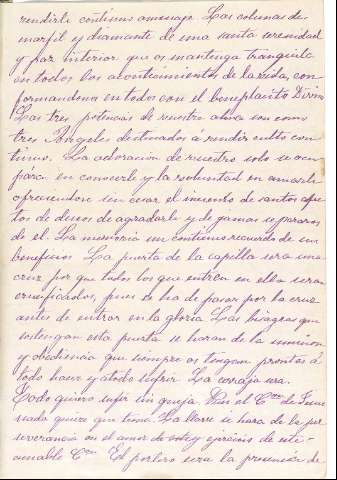 rendirle continuo amenaje. Las colunas de
marfil y diamante de una santa serenidad
y paz interior que os mantenga tranquila
en todos los acontecimientos de la vida, con-
formandonos en todos con el beneplacito Divino
Las tres potencias de nuestra alma son como
tres Angeles destinados á rendir culto con
tinuo. La adoracion de nuestro solo se ocu-
pára en conocerle y la voluntad en amarle
ofreciendose sin cesar el incienso de santos afec
tos de deseos de agradarle y de jamas separaros
de el. La memoria un continuo recuerdo de sus
beneficios La puerta de la capilla sera una
cruz por que todos los que entren en ella seran
crucificados, pues se ha de pasar por la cruz
antes de entrar en la gloria Las bisagras que
sostengan esta puerta se haran de la sumision
y obediencia que siempre os tengan prontos á
todo hacer y a todo sufrir La cerraja sera.
Todo quiero sufrir sin queja Pues el Cⁿ de Jesus
nada quiero que tema. La llave se hara de la per
severancia en el amor de este y ejercicios de este
amable Cⁿ El portero sera la presencia de